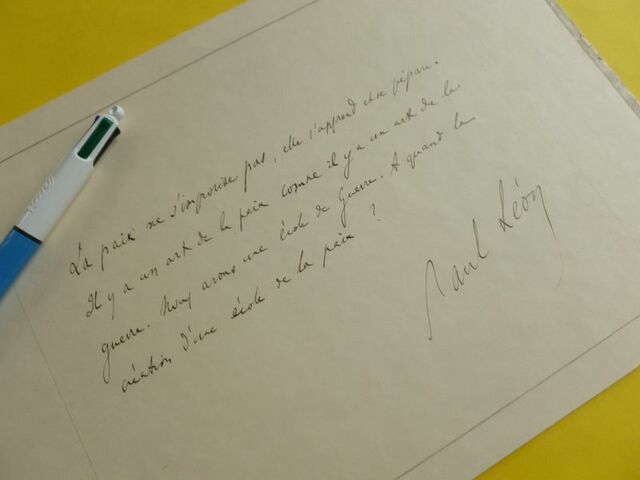 La paix ne s'improvise pas, elle s'apprend et se prépare.
Il y a un art de la paix comme il y a un art de la
guerre. Nous avons une école de Guerre. A quand la
création d'une école de la paix ?
Paul Léon